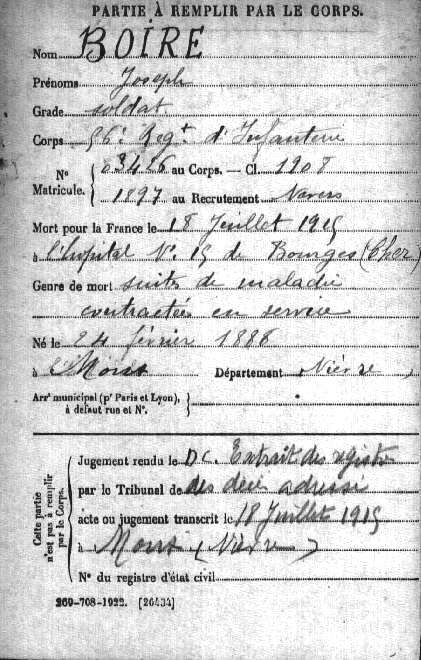 PARTIE À REMPLIR PAR LE CORPS.
Nom BOIRE
Prénoms Joseph
Grade soldat
Corps 56e Regt d'Infanterie
N° Matricule. { 03426 au Corps. — Cl. 1908
1897 au Recrutement Nevers
Mort pour la France le 18 Juillet 1915
à l'hôpital N° 15 de Bourges (Cher)
Genre de mort suite de maladie
contractée en service
Né le 24 février 1888
à Département Nièvre
Arrt municipal (pr Paris et Lyon), à défaut rue et N°. }
Cette partie n'est pas à remplir par le Corps.
Jugement rendu le DC. Extrait des registres
par le Tribunal de des décès adressé
acte ou jugement transcrit le 18 Juillet 1915
à (Nièvre)
N° du registre d'état civil
269-708-1922. [26434]